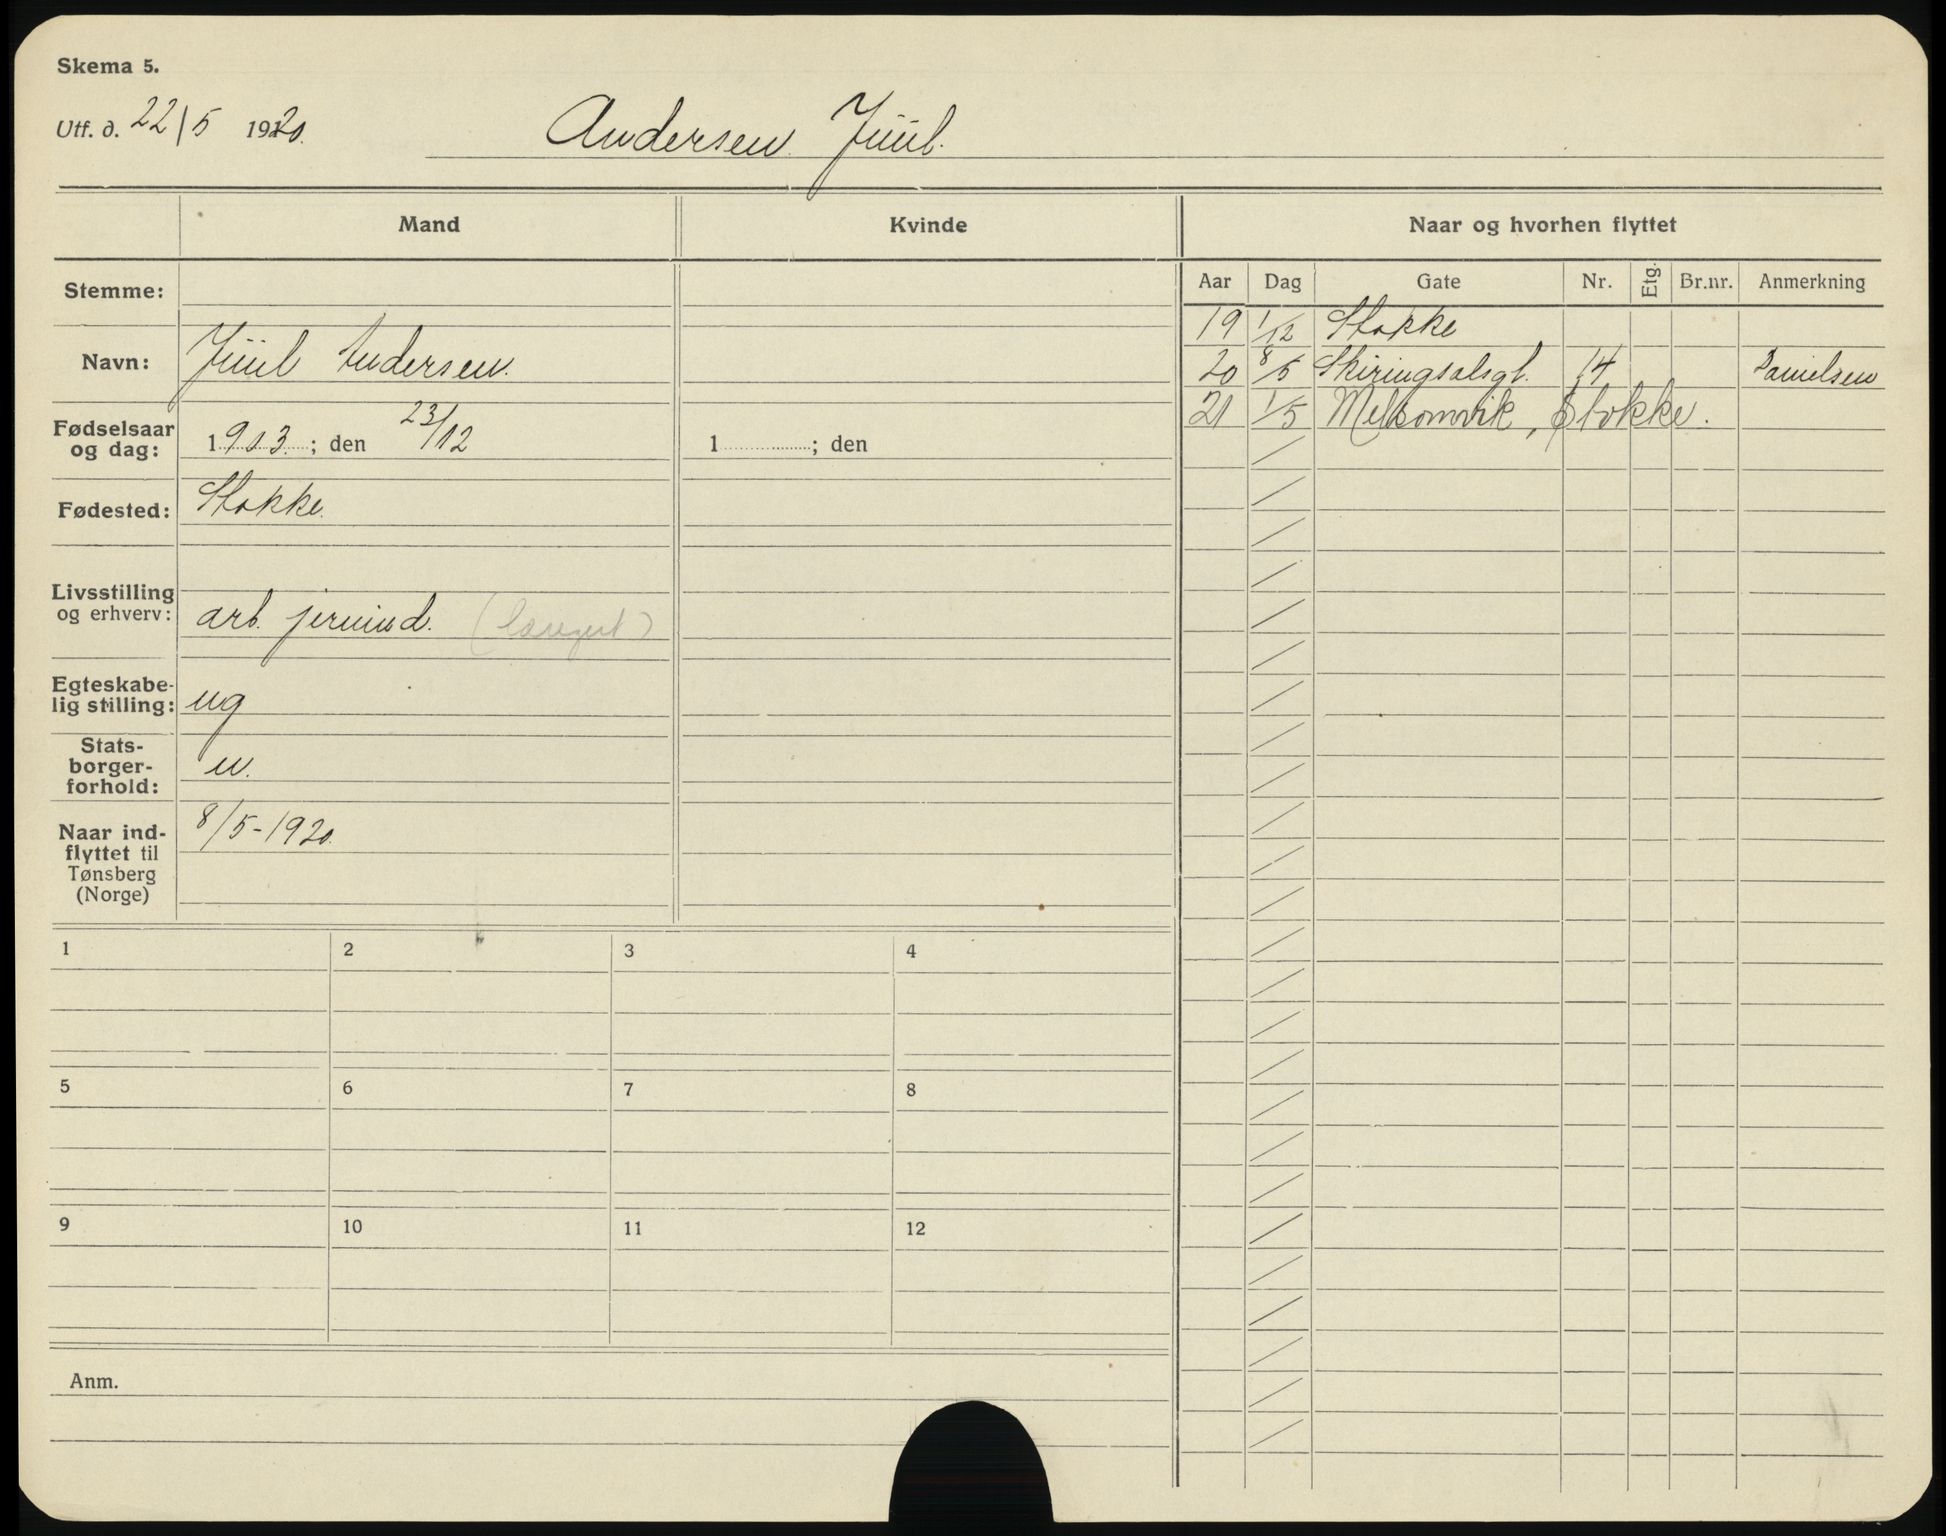 Skema 5.
Utf. d. 22/5 1920.
Andersen Juul.
Mand Kvinde Naar og hvorhen flyttet
Aar Dag Gate Nr. Etg. Br.nr. Anmerkning
Stemme:
19 1/12 Stokke
Navn: Juul Andersen.
20 8/5 Skiringsalsgt. 14 Danielsen
21 1/5 Melsomvik, Stokke.
Fødselsaar
og dag: 1903; den 23/12 1 ; den
Fødested: Stokke.
Livsstilling
og erhverv: arb. jernind.
Egteskabe-
lig stilling: ug
Stats-
borger-
forhold: n.
Naar ind-
flyttet til
Tønsberg
(Norge)
8/5-1920.
1 2 3 4
5 6 7 8
9 10 11 12
Anm.